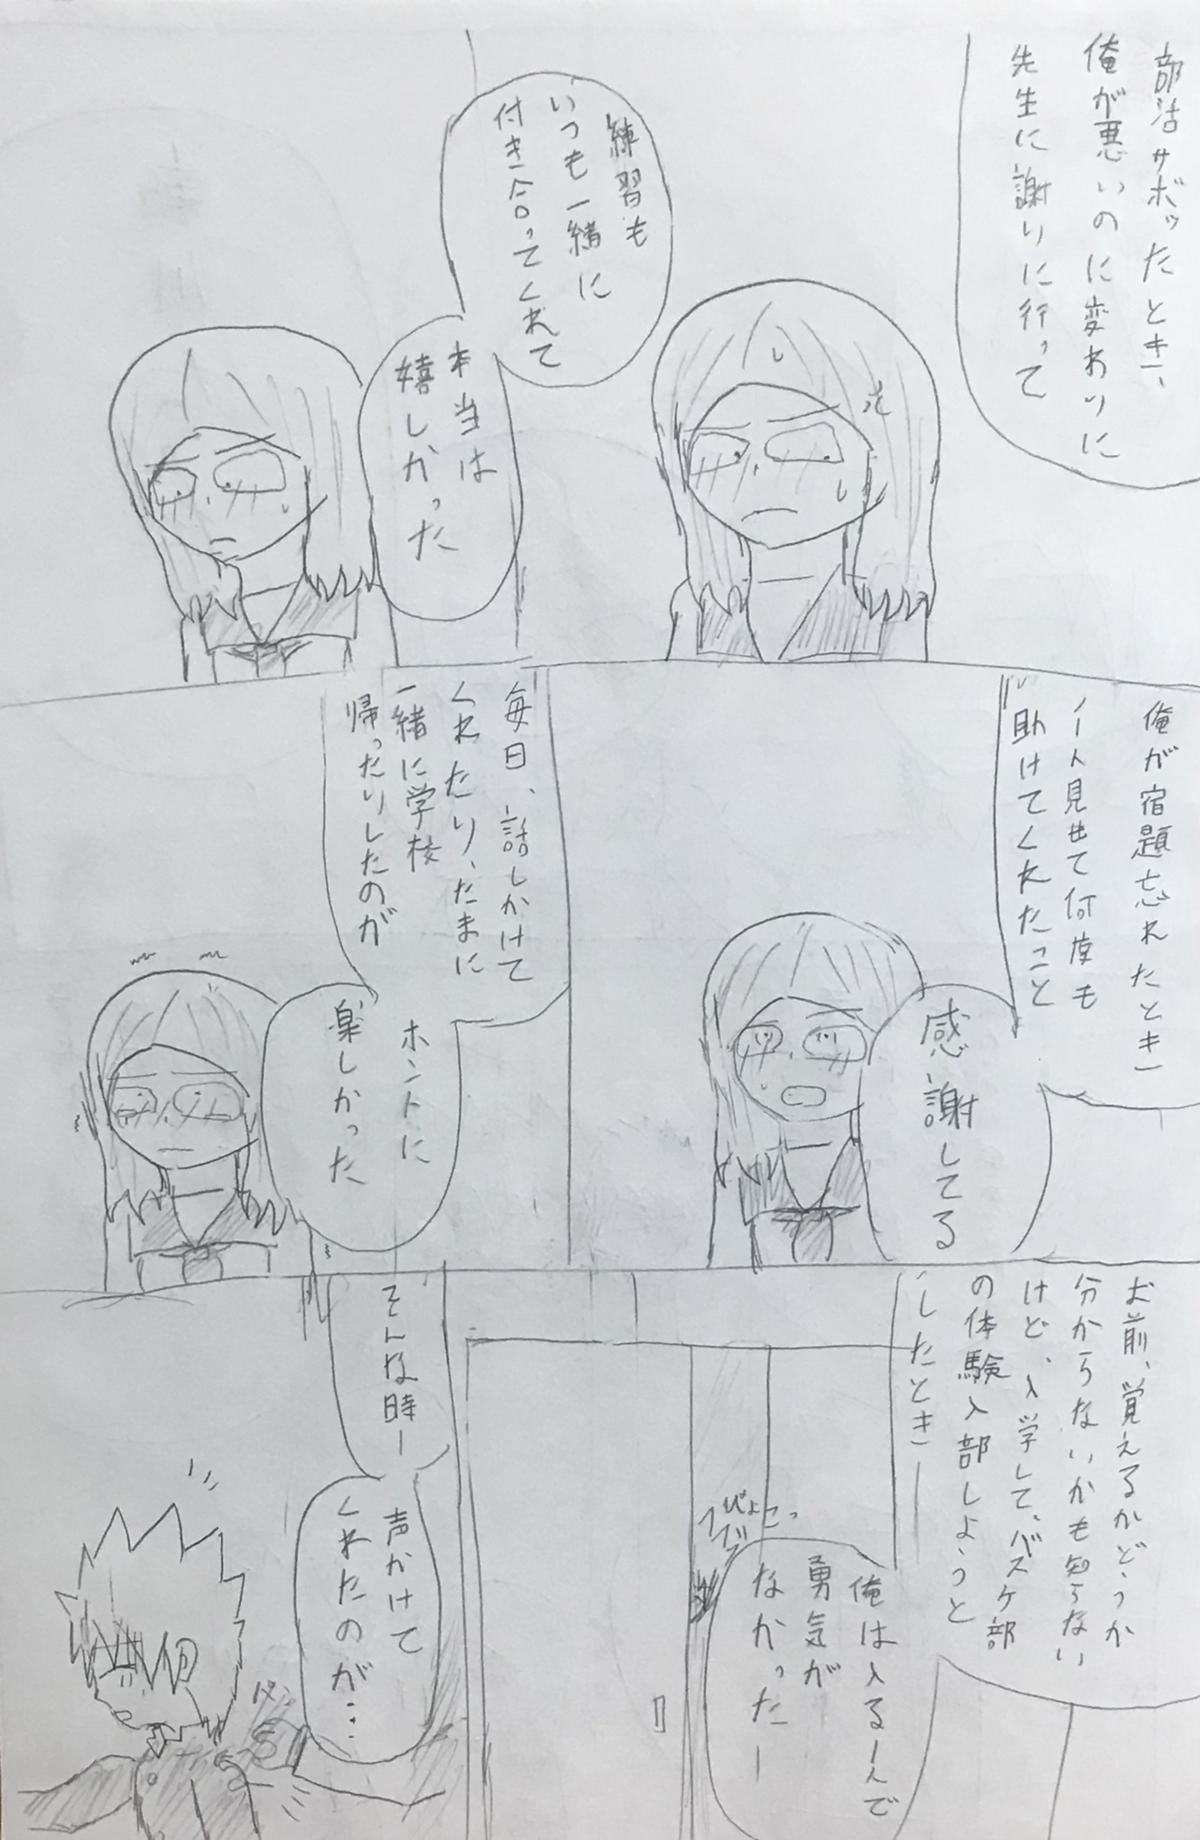 部活サボったとき、
俺が悪いのに変わりに
先生に謝りに行って
練習も
いつも一緒に
付き合ってくれて
本当は
嬉しかった
俺が宿題忘れたとき
ノート見せて何度も
助けてくれたこと
感謝してる
毎日、話しかけて
くれたり、たまに
一緒に学校
帰ったりしたのが
ホントに
楽しかった
お前、覚えるかどうか
分からないかも知らない
けど、入学して、バスケ部
の体験入部しようと
したときー
ぴょこっ
俺は入る！んで
勇気が
なかったー
そんな時ー
声かけて
くれたのが…